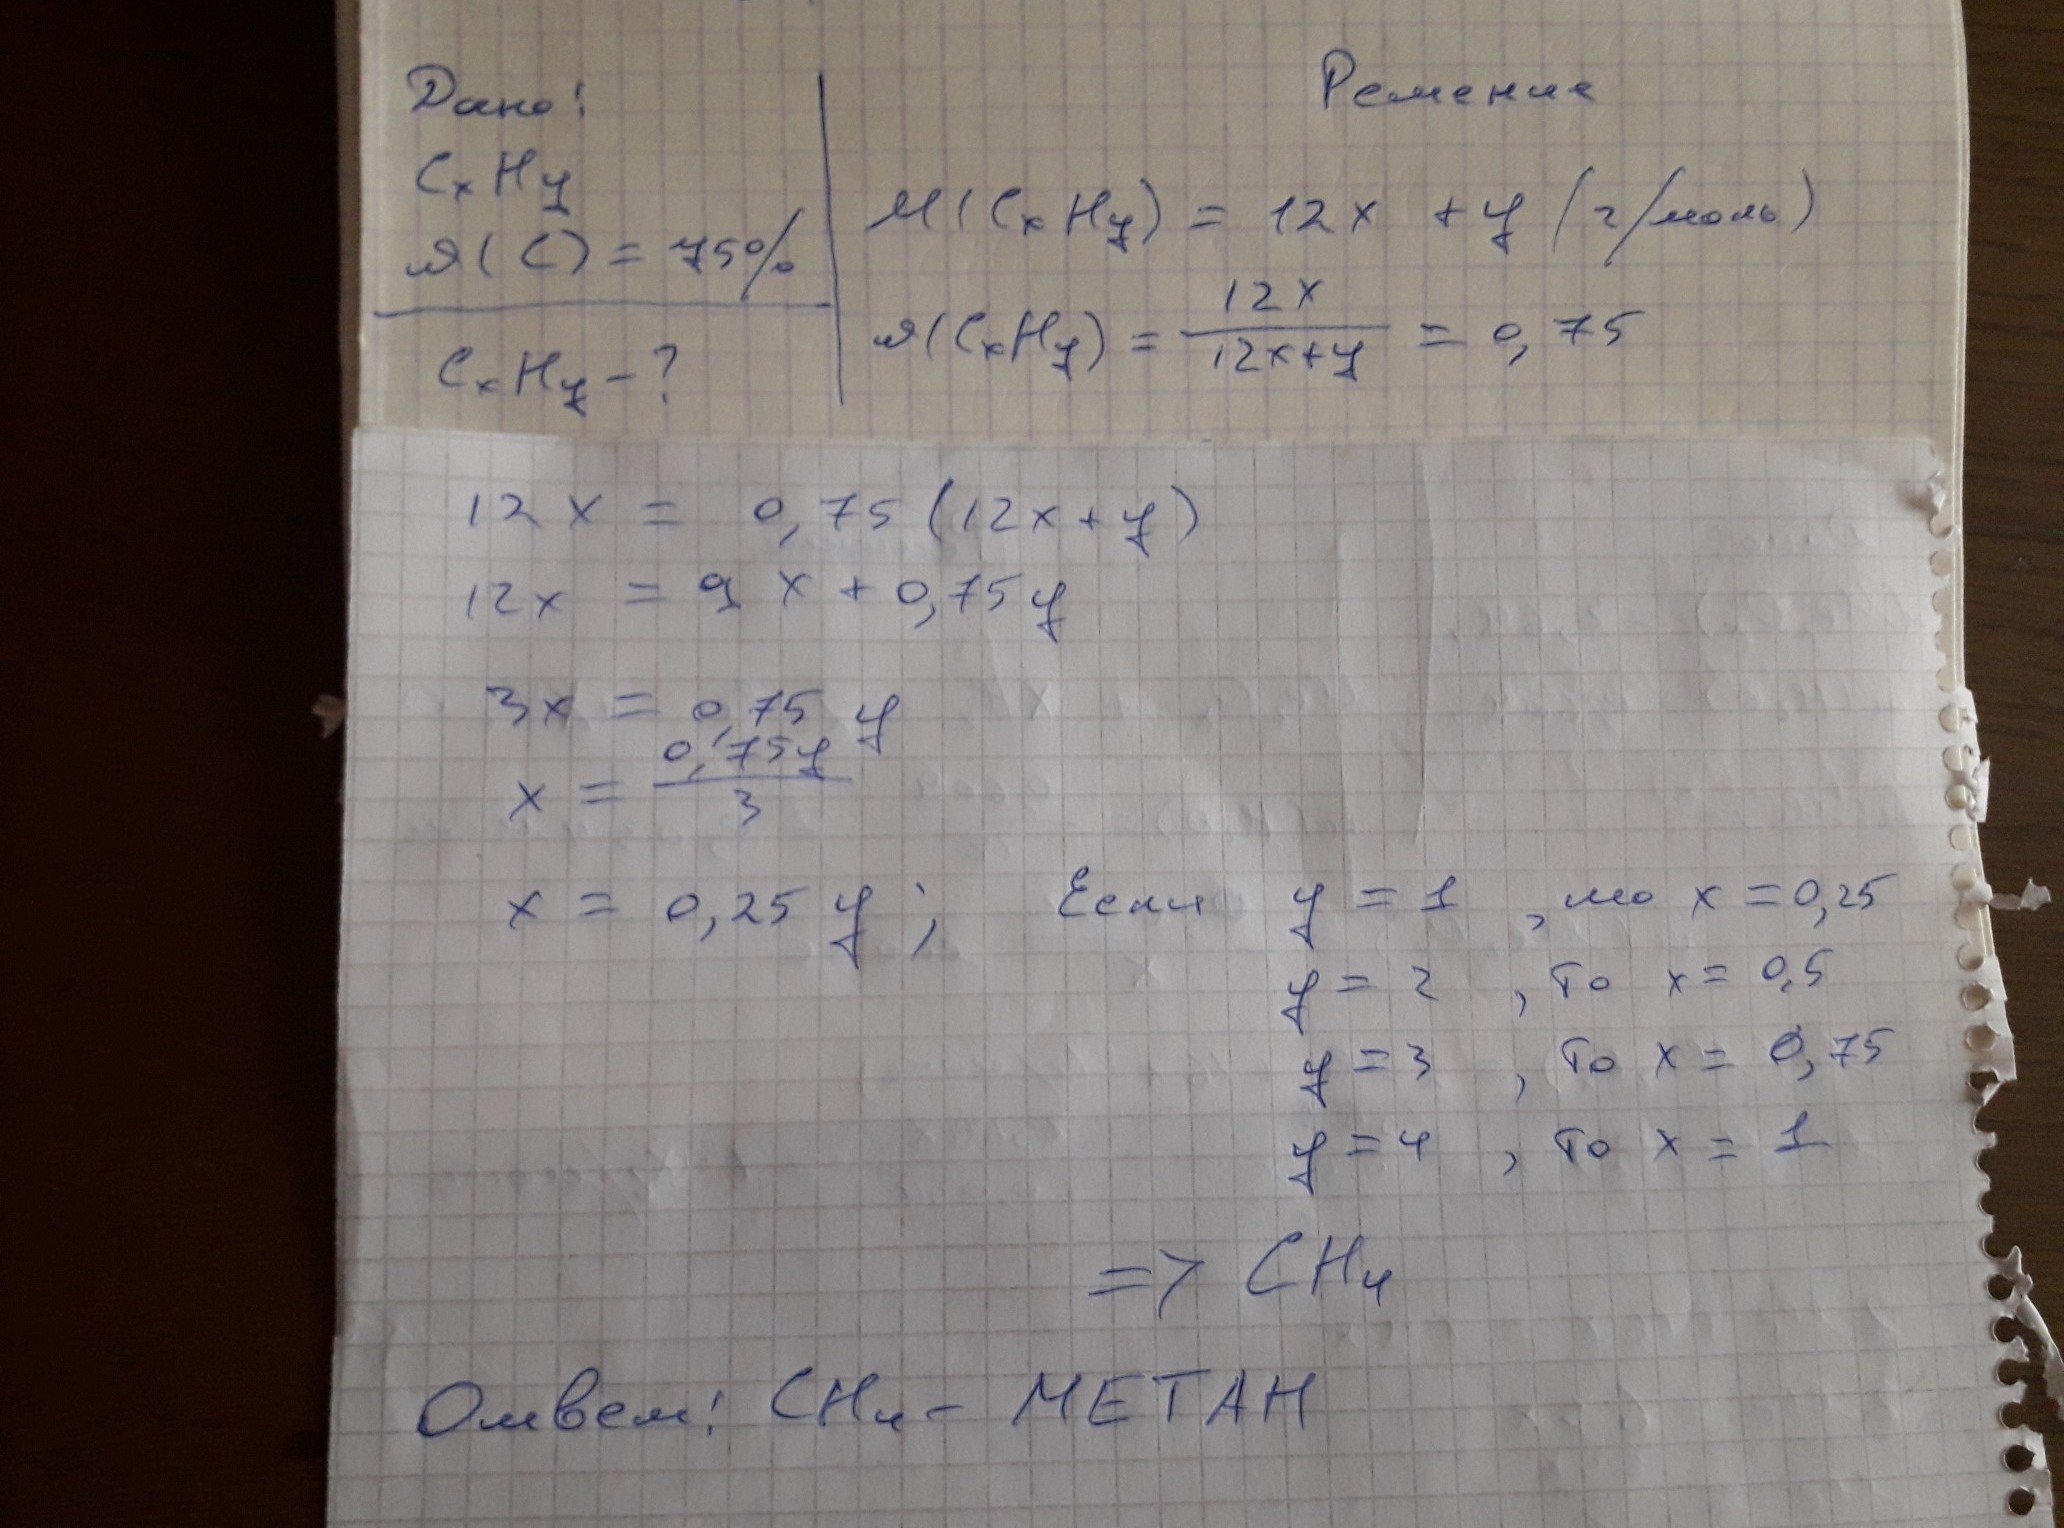 Дано:
CₓHᵧ
ω(C) = 75%
CₓHᵧ - ?
Решение
M(CₓHᵧ) = 12x + y (г/моль)
ω(CₓHᵧ) = 12x / 12x+y = 0,75
12x = 0,75(12x+y)
12x = 9x + 0,75y
3x = 0,75 y
x = 0,75y / 3
x = 0,25 y ; Если y = 1 , то x = 0,25
y = 2 , то x = 0,5
y = 3 , то x = 0,75
y = 4 , то x = 1
=> CH₄
Ответ: CH₄ - МЕТАН